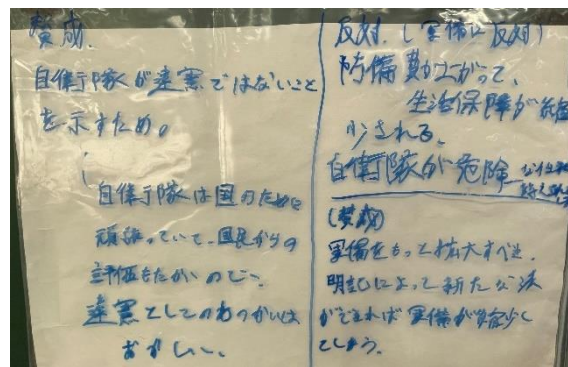 賛成.
自衛隊が違憲ではないこと
を示すため。
自衛隊は国のために
頑張っていて、国民からの
評価もたかいので、
違憲としてのあつかいは
おかしい。
反対.(軍備に反対)
防備費が上がって、
生活保障が
少される。
自衛隊が危険
(賛成)
軍備をもって拡大すべき.
明記によって新たな法
ができれば軍備が
しまう。